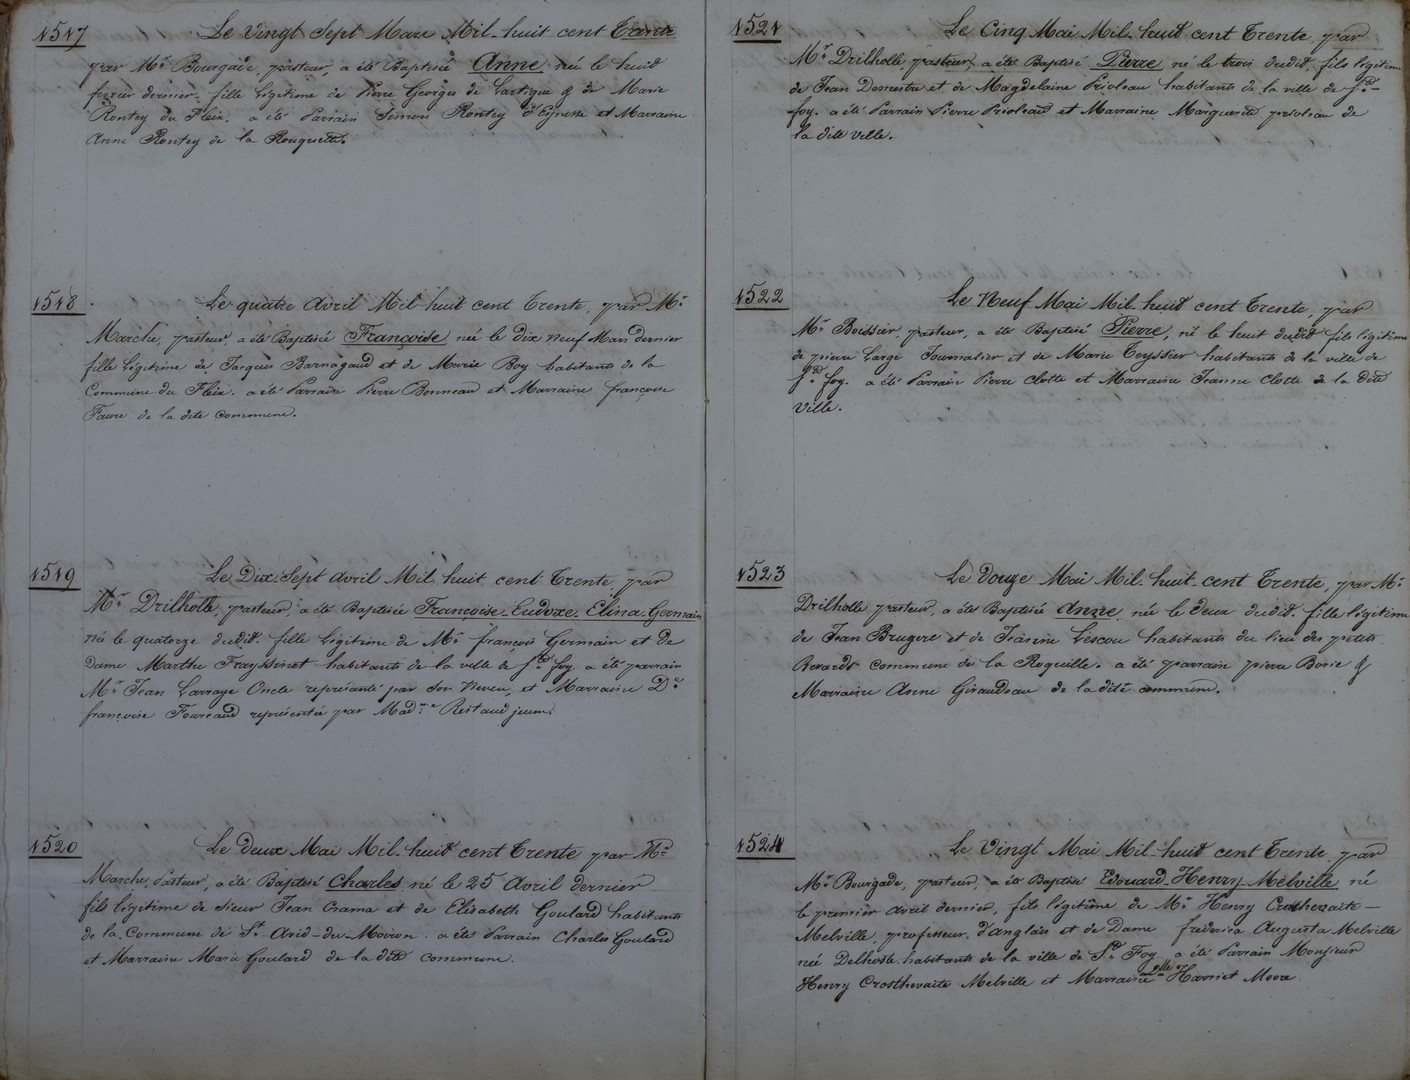 1517
Le Vingt Sept Mars Mil-huit cent Trente
par Mr. Bourgade, pasteur, a été Baptisée Anne, née le huit
fevrier dernier, fille légitime de Pierre Georges de Lartigue & de Marie
Rontey du Fleix. a été Parrain Simon Rontey et Marraine
Anne Rontey de la Rouquette.
1518
Le quatre Avril Mil huit cent Trente, par Mr.
Marche, pasteur, a été Baptisée Françoise né le dix neuf Mars dernier
fille légitime de Jacques Barnagaud et de Marie Boy habitants de la
Commune du Fleix. a été Parrain Pierre Bonneau et Marraine françoise
Faure de la dite commune.
1519
Le Dix-Sept Avril Mil huit cent Trente, par
Mr. Drilholle, pasteur, a été Baptisée Françoise-Eudoxe-Elina-Germain
né le quatorze dudit. fille légitime de Mr. françois Germain et de
Dame Marthe Frayssinet habitants de la ville de Ste. foy a été parrain
Mr. Jean Larraye Oncle représenté par son Neveu, et Marraine De.
françoise Foureaud représentée par Madme. Restaud jeune.
1520
Le deux Mai Mil-huit cent Trente par Mr.
Marche, Pasteur, a été Baptisé Charles né le 25 Avril dernier
fils légitime de Sieur Jean Crama et de Elisabeth Goulard habitants
de la Commune de St. Avid-du-Moiron. a été Parrain Charles Goulard
et Marraine Marie Goulard de la dite commune.
1521
Le Cinq Mai Mil-huit cent Trente, par
Mr. Drilholle, pasteur, a été Baptisé Pierre né le trois dudit, fils légitime
de Jean Demestre et de Magdelaine Prioleau habitants de la ville de Ste.-
foy. a été Parrain Pierre Prioleau et Marraine Marguerite prioleau de
la dite ville.
1522
Le Neuf Mai Mil-huit cent Trente, par
Mr. Boissier pasteur, a été Baptisé Pierre, né le huit dudit fils légitime
de pierre Large Journalier et de Marie Teyssier habitants de la ville de
Ste. foy. a été Parrain Pierre Clotte et Marraine Jeanne Clotte de la dite
Ville.
1523
Le Douze Mai Mil-huit-cent Trente, par Mr.
Drilholle pasteur, a été Baptisée Anne, née le deux dudit. fille légitime
de Jean Brugere et de Jeanne Lescou habitants du lieu des petits
Berards commune de la Roquille. a été parrain pierre Borie &
Marraine Anne Giraudeau de la dite commune.
1524
Le Vingt Mai Mil-huit cent Trente, par
Mr. Bourgade, pasteur, a été Baptisé Edouard-Henry-Melville né
le premier Avril dernier, fils légitime de Mr. Henry Crosthevaite-
Melville, professeur d'anglais et de Dame frederica Augusta Melville
née Delhoste habitants de la ville de Ste. Foy a été Parrain Monsieur
Henry Crosthevaite Melville et Marraine Mlle. Harriet Moore